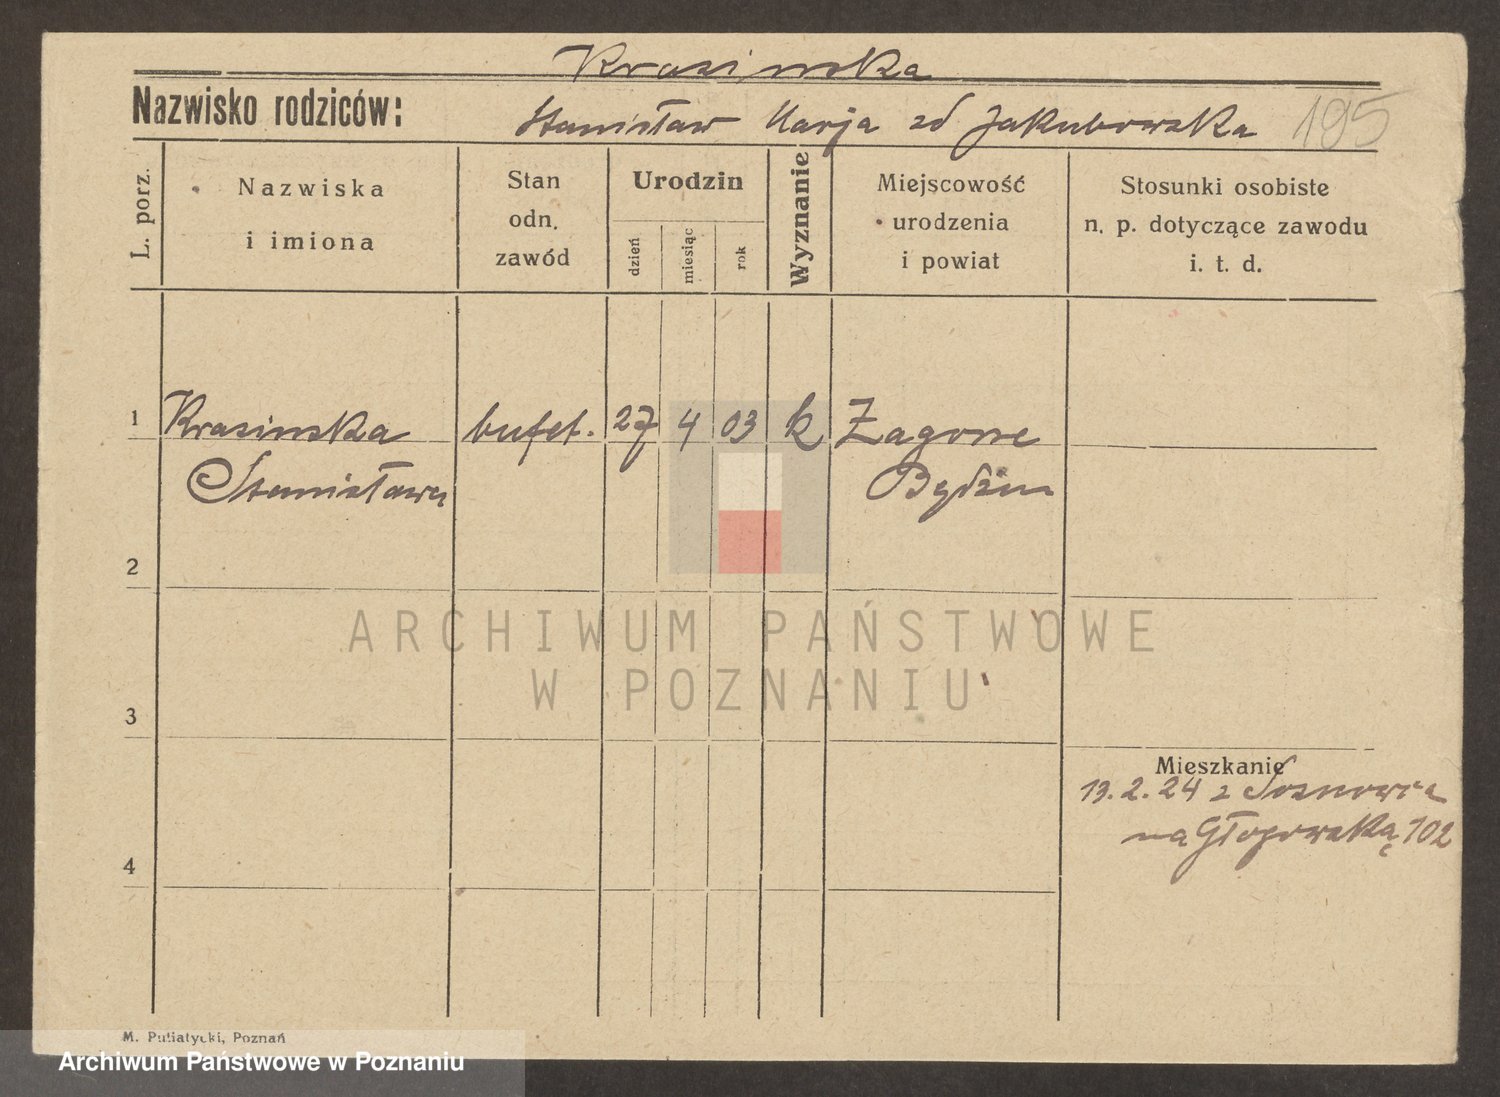 Krasinska
Nazwisko rodziców:
Stanisław Marja zd Jakubowska 195
L. porz.
Nazwiska
i imiona
Stan
odn.
zawód
Urodzin
dzień
miesiąc
rok
Wyznanie
Miejscowość
urodzenia
i powiat
Stosunki osobiste
n. p. dotyczące zawodu
i. t. d.
1 Krasinska bufet. 27 4 03 k Zagorze
Stanisława Będzin
2
ARCHIWUM PAŃSTWOWE
W POZNANIU
3
Mieszkanie
13.2.24 z Sosnowca
na Głogowską 102
4
M. Putiatycki, Poznań
Archiwum Państwowe w Poznaniu